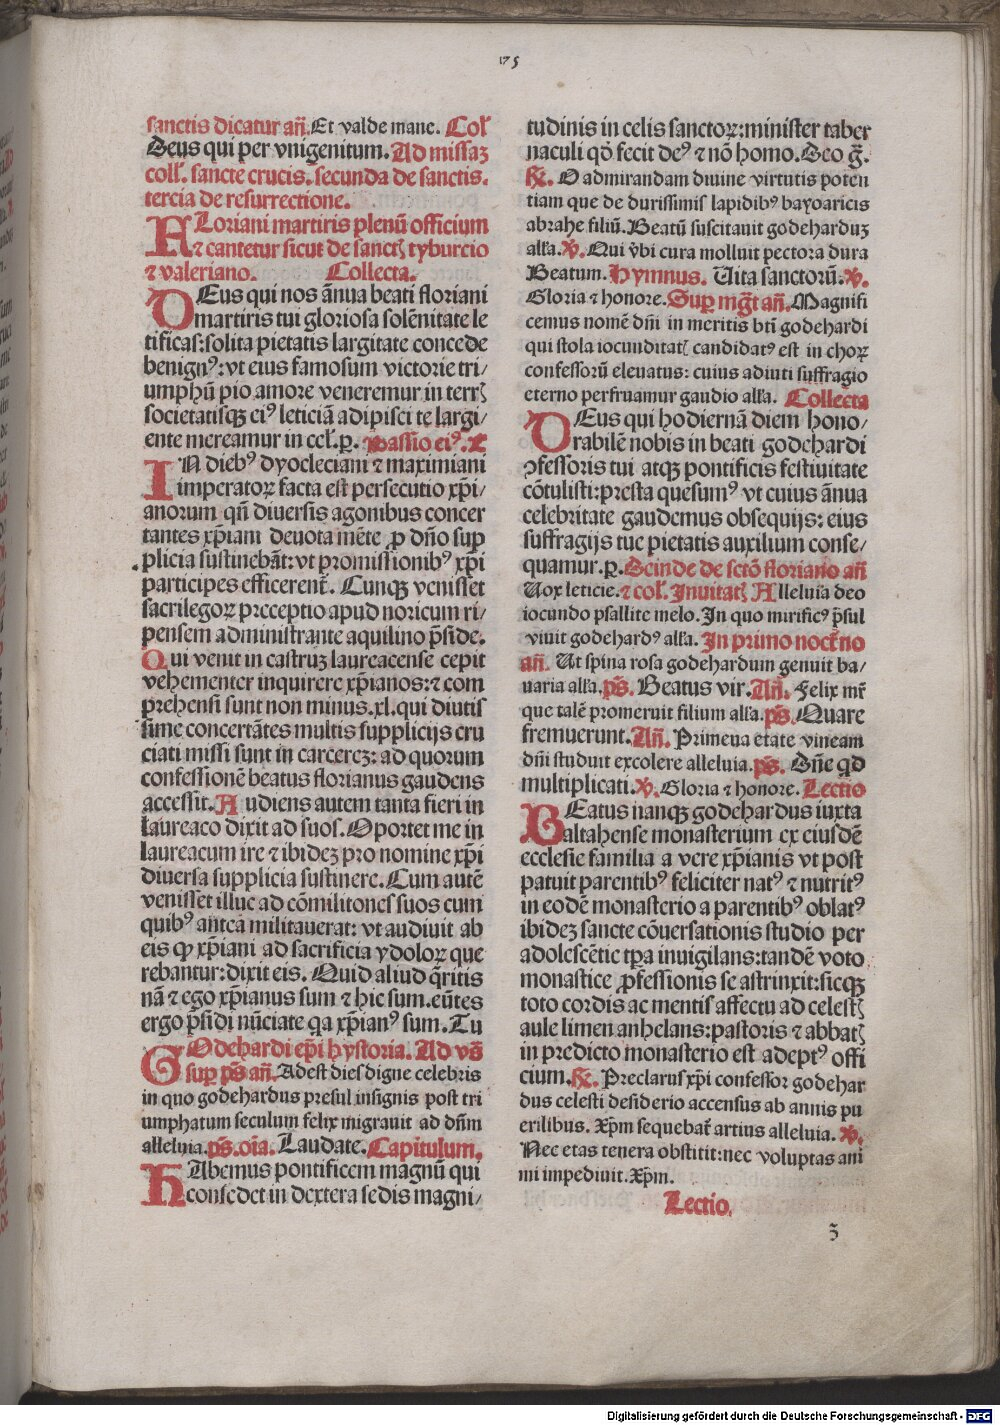 175
sanctis dicatur añ. Et valde mane. Col̃
Deus qui per vnigenitum. Ad missaꝫ
coll̃. sancte crucis. secunda de sanctis.
tercia de resurrectione.
FLoriani martiris plenũ officium
⁊ cantetur sicut de sanctꝭ tyburcio
⁊ valeriano. Collecta.
DEus qui nos ãnua beati floriani
martiris tui gloriosa solẽnitate le
tificas: solita pietatis largitate concede
benignꝰ: vt eius famosum victorie tri/
umphũ pio amore veneremur in terrꝭ
societatisqꝫ eiꝰ leticiã adipisci te largi/
ente mereamur in cel̃. p. Passio eiꝰ. L
IN diebꝰ dyocleciani ⁊ maximiani
imperatoꝝ facta est persecutio xp̃i/
anorum qñ diuersis agonibus concer
tantes xp̃iani deuota mẽte ꝓ dño sup̱
plicia sustinebãt: vt promissionibꝰ xp̃i
participes efficerent̃. Cunqꝫ venisset
sacrilegoꝝ preceptio apud noricum ri/
pensem administrante aquilino p̃side.
Qui venit in castruꝫ laureacense cepit
vehementer inquirere xp̃ianos: ⁊ com
prehensi sunt non minus. xl. qui diutis
sime concertãtes multis supplicijs cru
ciati missi sunt in carcereꝫ: ad quorum
confessionẽ beatus florianus gaudens
accessit. Audiens autem tanta fieri in
laureaco dixit ad suos. Oportet me in
laureacum ire ⁊ ibideꝫ pro nomine xp̃i
diuersa supplicia sustinere. Cum autẽ
venisset illuc ad cõmilitones suos cum
quibꝰ antea militauerat: vt audiuit ab
eis ꝙ xp̃iani ad sacrificia ydoloꝝ que
rebantur: dixit eis. Quid aliud q̃ritis
nã ⁊ ego xp̃ianus sum ⁊ hic sum. eũtes
ergo p̃sidi nũciate qa xp̃ianꝰ sum. Tu
GOdehardi ep̃i hystoria. Ad vs̃
sup ps̃ añ. Adest dies digne celebris
in quo godehardus presul insignis post tri
umphatum seculum felix migrauit ad dñm
alleluia. ps̃. oĩa. Laudate. Capitulum.
HAbemus pontificem magnũ qui
consedet in dextera sedis magni/
tudinis in celis sanctoꝝ: minister taber
naculi qð fecit deꝰ ⁊ nõ homo. Deo g̃.
R̃. O admirandam diuine virtutis poten
tiam que de durissimis lapidibꝰ bayoaricis
abrahe filiũ. Beatũ suscitauit godeharduꝫ
alła. V̷. Qui v̾bi cura molluit pectora dura
Beatum. Hymnus. Uita sanctorũ. V̷.
Gloria ⁊ honore. Sup mg̃t añ. Magnifi
cemus nomẽ dñi in meritis bti̇̃ godehardi
qui stola iocunditatꝭ candidatꝰ est in choꝝ
confessorũ eleuatus: cuius adiuti suffragio
eterno perfruamur gaudio alła. Collecta
DEus qui hodiernã diem hono/
rabilẽ nobis in beati godehardi
ꝯfessoris tui atqꝫ pontificis festiuitate
cõtulisti: presta quesumꝰ vt cuius ãnua
celebritate gaudemus obsequijs: eius
suffragijs tue pietatis auxilium conse/
quamur. p. Deinde de sctõ floriano añ
Uox leticie. ⁊ col̃. Inuitatꝭ Alleluia deo
iocundo psallite melo. In quo mirificꝰ p̃sul
viuit godehardꝰ alła. In primo noct̃no
añ. Ut spina rosa godehardum genuit ba/
uaria alła. ps̃. Beatus vir. Añ. Felix mr̃
que talẽ promeruit filium alła. ps̃. Quare
fremuerunt. Añ. Primeua etate vineam
dñi studuit excolere alleluia. ps̃. Dñe qd
multiplicati. V̷. Gloria ⁊ honore. Lectio
BEatus nanqꝫ godehardus iuxta
altahense monasterium ex eiusdẽ
ecclesie familia a vere xp̃ianis vt post
patuit parentibꝰ feliciter natꝰ ⁊ nutritꝰ
in eodẽ monasterio a parentibꝰ oblatꝰ
ibideꝫ sancte cõuersationis studio per
adolescẽtie tp̃a inuigilans: tandẽ voto
monastice ꝓfessionis se astrinxit: sicqꝫ
toto cordis ac mentis affectu ad celestꝭ
aule limen anhelans: pastoris ⁊ abbatꝭ
in predicto monasterio est adeptꝰ offi
cium. R̃. Preclarus xp̃i confessor godehar
dus celesti desiderio accensus ab annis pu
erilibus. Xp̃m sequebat̃ artius alleluia. V̷.
Nec etas tenera obstitit: nec voluptas ani
mi impediuit. Xp̃m.
Lectio.
ꝫ̃
Digitalisierung gefördert durch die Deutsche Forschungsgemeinschaft - DFG